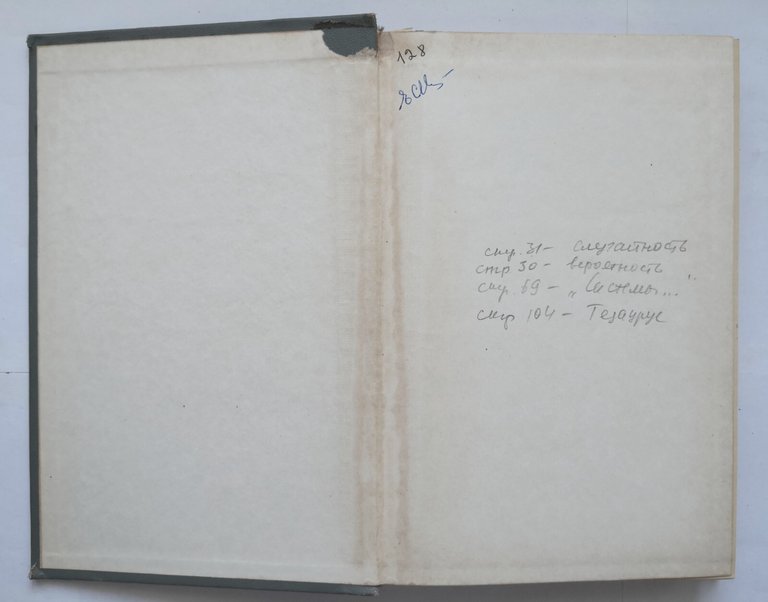 128
стр. 31 - случайность
стр 30 - вероятность
стр. 69 - "Системы..."
стр 104 - Тезаурус